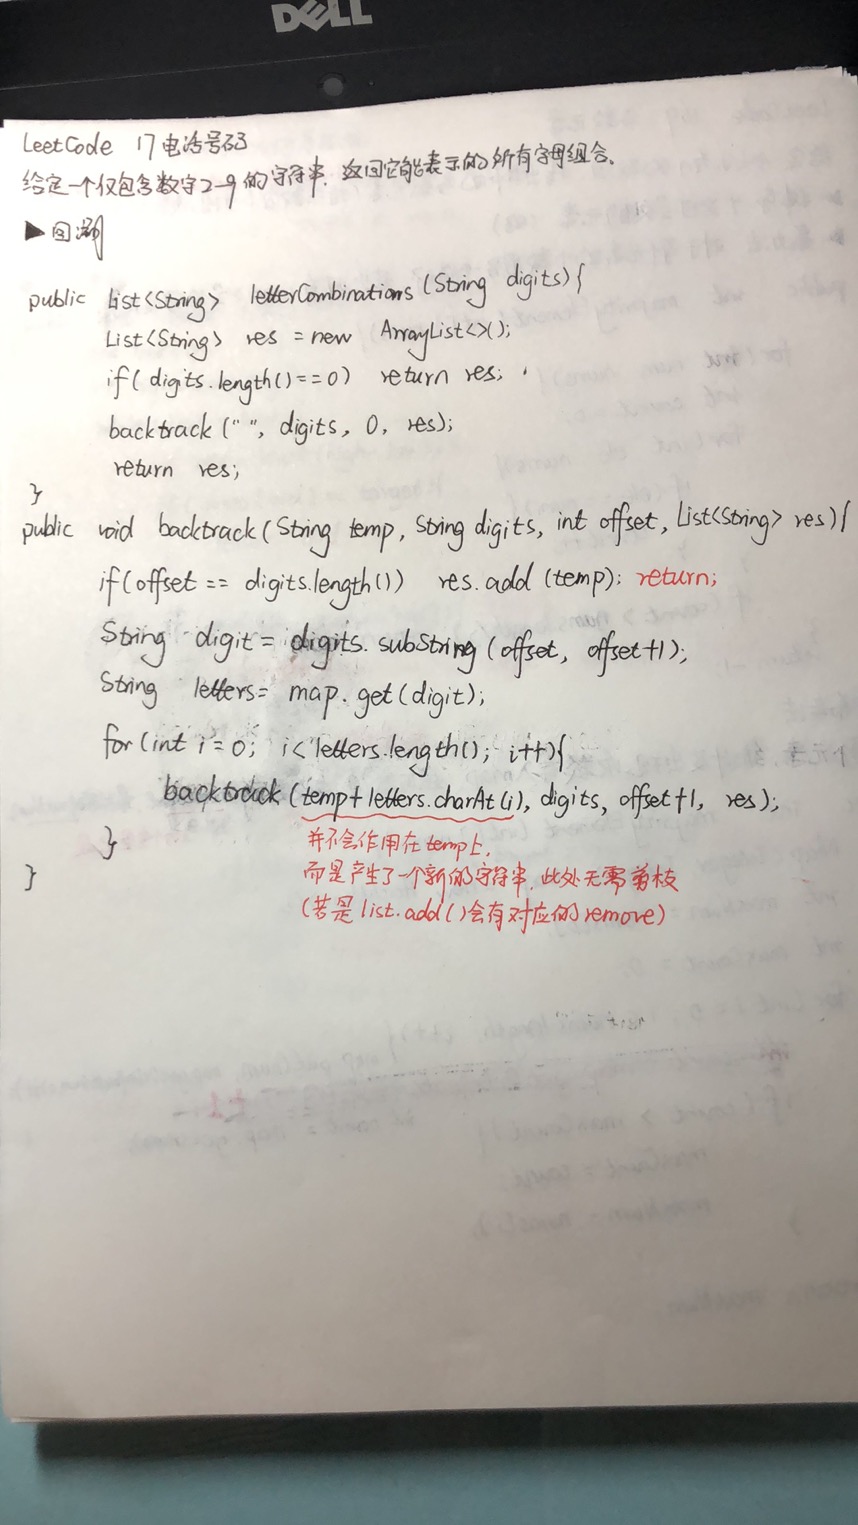 DELL
LeetCode 17 电话号码
给定一个仅包含数字2-9的字符串,返回它能表示的所有字母组合、
▶回溯
public List<String> letterCombinations(String digits){
List<String> res = new ArrayList<>();
if(digits.length()==0) return res;
backtrack(" ", digits, 0, res);
return res;
}
public void backtrack(String temp, String digits, int offset, List<String> res){
if(offset == digits.length()) res.add(temp); return;
String digit = digits.subString(offset, offset+1);
String letters= map.get(digit);
for(int i=0; i<letters.length(); i++){
backtrack(temp+letters.charAt(i), digits, offset+1, res);
}
并不会作用在temp上,
而是产生了一个新的字符串,此处无需剪枝
(若是list.add()会有对应的remove)
}